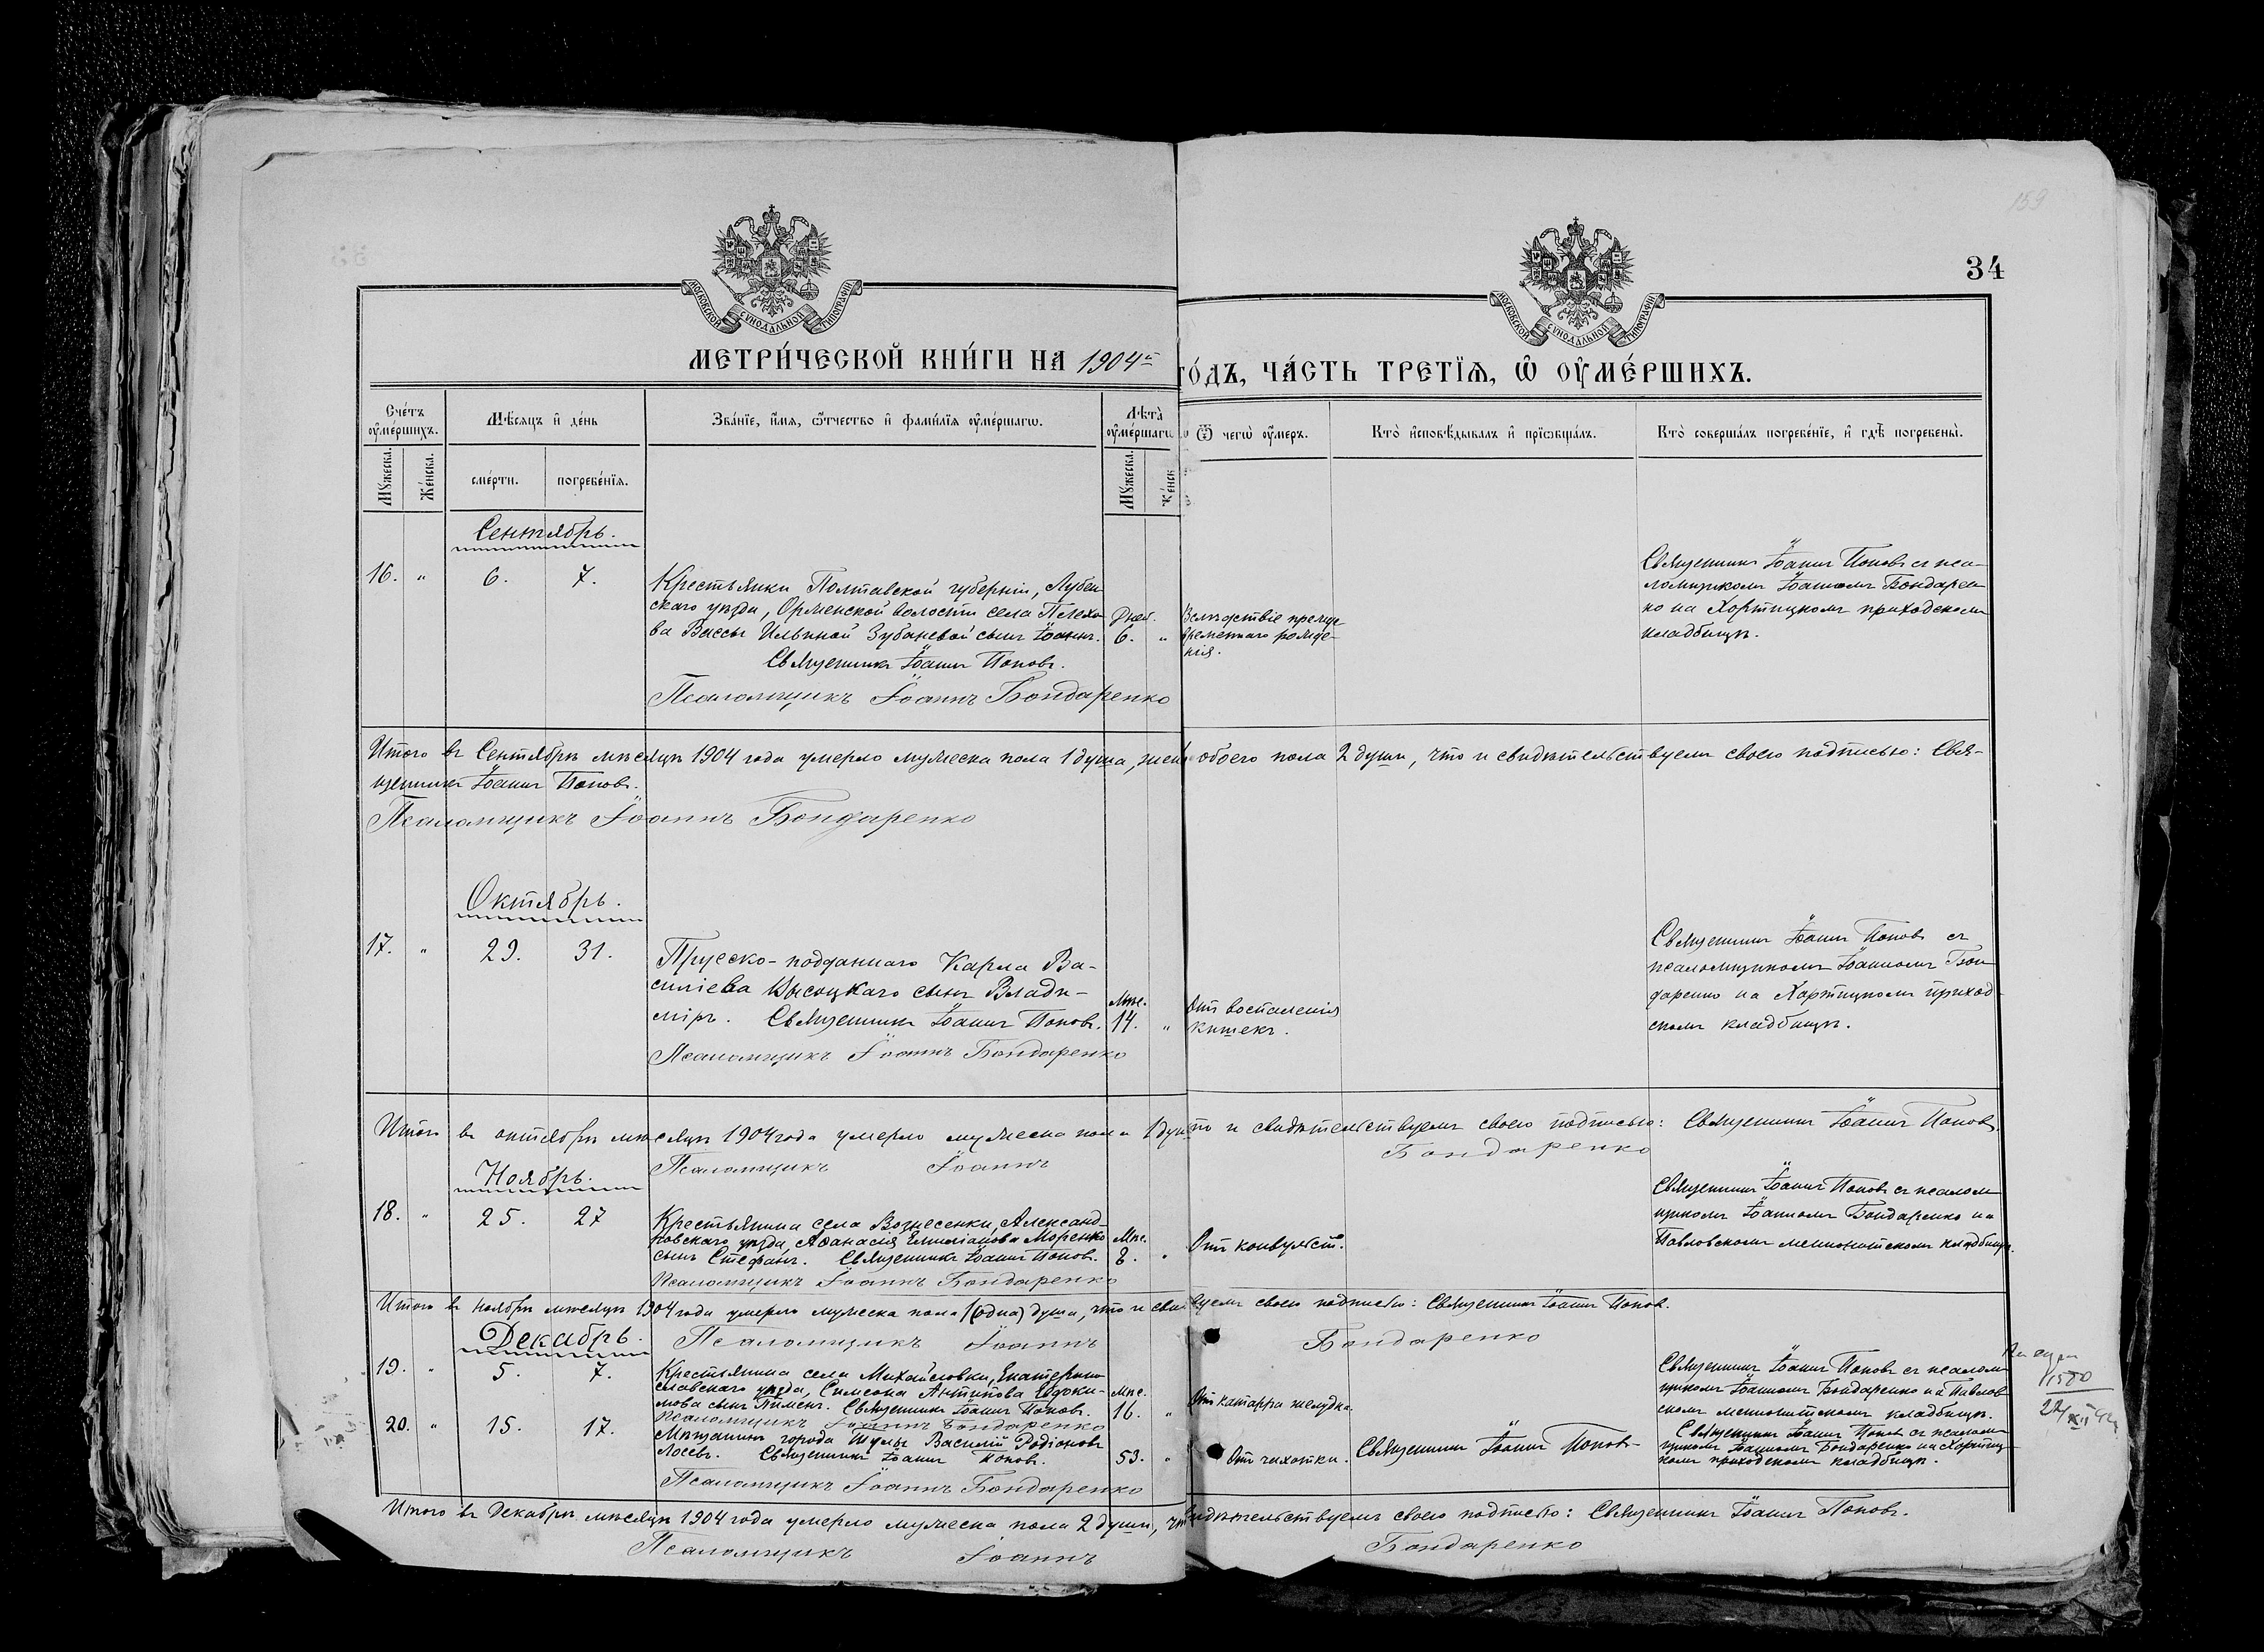 159
34
МОСКОВСКОЙ СѴНОДАЛЬНОЙ ТИПОГРАФІИ
МОСКОВСКОЙ СѴНОДАЛЬНОЙ ТИПОГРАФІИ
МЕТРИ́ЧЕСКОЙ КНИ́ГИ НА 1904й
ГО́ДЪ, ЧА́СТЬ ТРЕТЇѦ, Ѡ҆ ОУ҆МЕ́РШИХЪ.
Сче́тъ оу҆ме́ршихъ.
Мѣ́сяцъ и҆ де́нь
Зва́нїе, и҆́мя, ѻ҆́тчество и҆ фами́лїя оу҆ме́ршагѡ.
Лѣ́та оу҆ме́ршагѡ
Ѿ чегѡ̀ оу҆́меръ.
Кто̀ и҆сповѣ́дывалъ и҆ прїѡбща́лъ.
Кто̀ соверша́лъ погребе́нїе, и҆ гдѣ̀ погребены̀.
Мꙋ́жеска.
Же́нска.
сме́рти.
погребе́нїя.
Мꙋ́жеска.
Же́нск
Сентябрь.
16. " 6. 7.
Крестьянки Полтавской губерніи, Лубен
скаго уѣзда, Орженской волости села Плехо
ва Вассы Ильиной Зубаневой сынъ Іоаннъ.
Дней.
6. "
Вслѣдствіе прежде
временнаго рожде-
нія.
Священникъ Іоаннъ Поповъ съ пса-
ломщикомъ Іоанномъ Бондарен
ко на Хортицкомъ приходскомъ
кладбищѣ.
Священникъ Іоаннъ Поповъ.
Псаломщикъ Іоаннъ Бондаренко
Итого въ Сентябрѣ мѣсяцѣ 1904 года умерло мужеска пола 1 душа, жен обоего пола 2 души, что и свидѣтельствуемъ своею подписью: Свя-
щенникъ Іоаннъ Поповъ.
Псаломщикъ Іоаннъ Бондаренко
Октябрь.
17. " 29. 31.
Прусско-подданнаго Карла Ва-
силіева Высоцкаго сынъ Влади-
міръ. Священникъ Іоаннъ Поповъ.
Псаломщикъ Іоаннъ Бондаренко
Мѣс.
14. "
Отъ воспаленія
кишекъ.
Священникъ Іоаннъ Поповъ съ
псаломщикомъ Іоанномъ Бон
даренко на Хортицкомъ приход
скомъ кладбищѣ.
Итого въ октябрѣ мѣсяцѣ 1904 года умерло мужеска пола 1 душ то и свидѣтельствуемъ своею подписью: Священникъ Іоаннъ Поповъ.
Псаломщикъ Іоаннъ Бондаренко
Ноябрь.
18. " 25. 27
Крестьянина села Вознесенки, Александ-
ровскаго уѣзда Аѳанасія Емиліанова Моренко
сынъ Стефанъ. Священникъ Іоаннъ Поповъ.
Псаломщикъ Іоаннъ Бондаренко
Мѣс.
8. "
Отъ конвульст.
Священникъ Іоаннъ Поповъ съ псалом
щикомъ Іоанномъ Бондаренко на
Павловскомъ меннонитскомъ кладбищѣ.
Итого въ ноябрѣ мѣсяцѣ 1904 года умерло мужеска пола 1 (одна) душа, что и сви вуемъ своею подписью: Священникъ Іоаннъ Поповъ.
Псаломщикъ Іоаннъ Бондаренко
Декабрь.
19. " 5. 7.
Крестьянина села Михайловки, Екатерино
славскаго уѣзда, Симеона Антипова Евдоки-
мова сынъ Пименъ. Священникъ Іоаннъ Поповъ.
Псаломщикъ Іоаннъ Бондаренко
Мѣс.
16. "
Отъ катарра желудка.
Священникъ Іоаннъ Поповъ съ псалом
щикомъ Іоанномъ Бондаренко на Павлов
скомъ меннонитскомъ кладбищѣ.
20. " 15. 17.
Мѣщанинъ города Шумъ Василій Родіоновъ
Лосевъ. Священникъ Іоаннъ Поповъ.
Псаломщикъ Іоаннъ Бондаренко
53. "
Отъ чахотки.
Священникъ Іоаннъ Поповъ
Священникъ Іоаннъ Поповъ съ псалом
щикомъ Іоанномъ Бондаренко на Хортиц
комъ приходскомъ кладбищѣ.
Итого въ Декабрѣ мѣсяцѣ 1904 года умерло мужеска пола 2 души, что идѣтельствуемъ своею подписью: Священникъ Іоаннъ Поповъ.
Псаломщикъ Іоаннъ Бондаренко